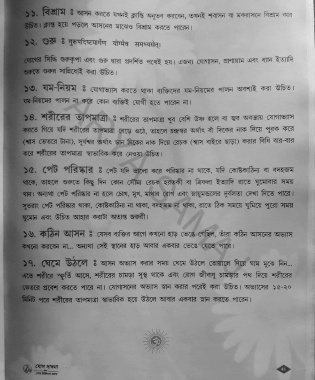 ১১. বিশ্রাম ঃ আসন করতে যখনই ক্লান্তি অনুভব করবেন, তখনই শবাসন বা মকরাসনে বিশ্রাম করা
উচিত। ক্লান্ত হয়ে পড়লে আসনের মাঝেও বিশ্রাম করতে পারেন।
১২. গুরু ঃ
যোগের সিদ্ধি গুরুকৃপা এবং গুরু দ্বারা প্রদর্শিত পথেই হয়। এজন্য যোগাসন, প্রাণায়াম এবং ধ্যান ইত্যাদি
শুরুতে গুরুর সান্নিধ্যেই করা উচিত।
১৩. যম-নিয়ম ঃ যোগাভ্যাস করতে থাকা ব্যক্তিদের যম-নিয়মের পালন অবশ্যই করা উচিত।
যম-নিয়মের পালন না করে কোন ব্যক্তিই যোগী হতে পারেন না।
১৪. শরীরের তাপমাত্রা ঃ শরীরের তাপমাত্রা খুব বেশি উষ্ণ হলে বা জ্বর অবস্থায় যোগাভ্যাস
করতে গিয়ে যদি শরীরের তাপমাত্রা বেড়ে ওঠে, তাহলে চন্দ্রস্বর অর্থাৎ বাঁ দিকের নাক দিয়ে পূরক করে
(শ্বাস ভেতরে টানা), সূর্যস্বর অর্থাৎ ডান দিকের নাক দিয়ে রেচক (শ্বাস বাইরে ছাড়া) করার বিধি বার-বার
করে শরীরের তাপমাত্রা স্বাভাবিক করে নেওয়া উচিত।
১৫. পেট পরিষ্কার ঃ পেট যদি ভালো করে পরিষ্কার না থাকে, যদি কোষ্টকাঠিন্য বা বদহজম
থাকে, তাহলে শুরুতে কিছু দিন কোন সৌম্য রেচক হরীতকী বা ত্রিফলা ইত্যাদি রাতে ঘুমোবার সময়
খান। অন্যথা পেট পরিষ্কার না হলে চোখ, মুখ, মাথার রোগ এবং স্নায়ুমন্ডলের দুর্বলতা দেখা দিতে পারে।
সুতরাং পেট পরিষ্কার থাকা, কোষ্টকাঠিন্য না থাকা, বদহজম না থাকা, রাতে ঠিক সময়ে ঘুমিয়ে পুরো সময়
ঘুমোন এবং উচিত আহার করাটা অত্যন্ত জরুরী।
১৬. কঠিন আসন ঃ যেসব ব্যক্তির আগে কখনো হাড় ভেঙে গেছিল, তাঁরা কঠিন আসনের অভ্যাস
কখনো করবেন না... অন্যথা সেই স্থানের হাড় আবার একবার ভেঙে যেতে পারে।
১৭. ঘেমে উঠলে ঃ আসন অভ্যাস করার সময় ঘেমে উঠলে তোয়ালে দিয়ে ঘাম মুছে নিন...
এতে শরীরে স্ফূর্তি আসে, শরীরের চামড়া সুস্থ থাকে এবং রোগ জীবাণু চামড়ার পথ দিয়ে শরীরের
ভেতরে প্রবেশ করতে পারে না। যোগাসনের অভ্যাস স্নান করার পরেই করা উচিত। অভ্যাসের ১৫-২০
মিনিট পরে শরীরের তাপমাত্রা স্বাভাবিক হয়ে উঠলে আবার একবার স্নান করতে পারেন।
যোগ সাধনা